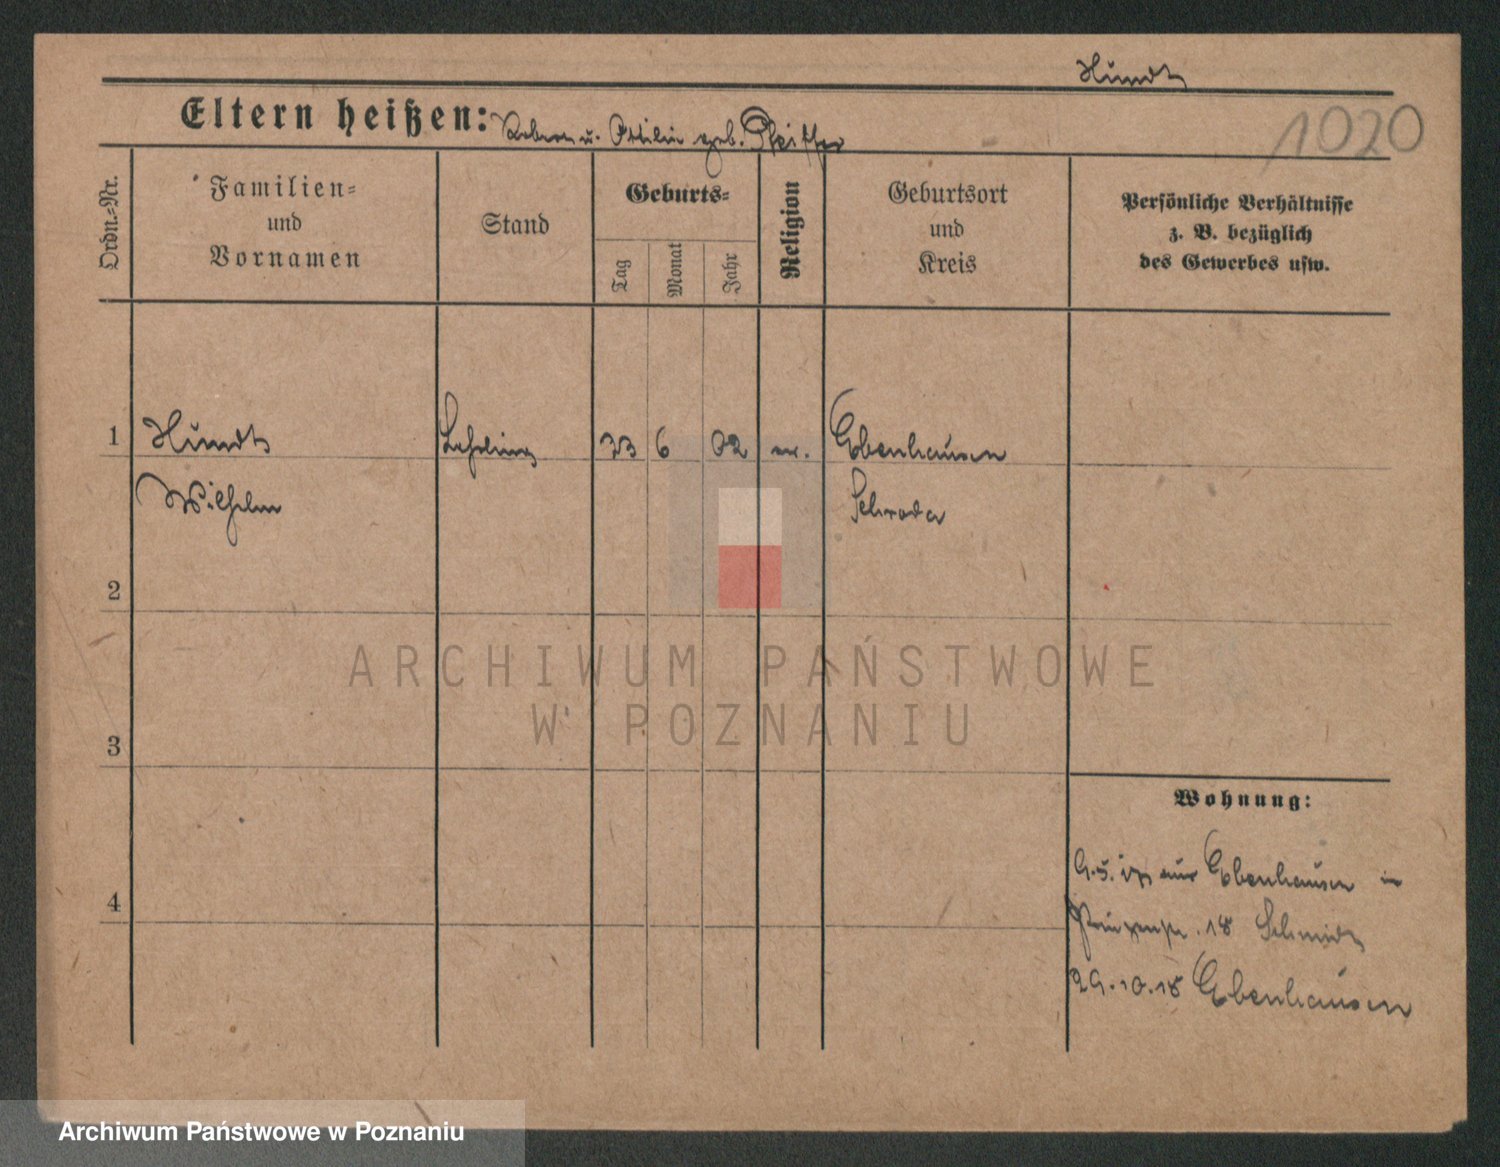 Hundt
1020
Eltern heißen: u. Ottilie geb. Pfeiffer
Ordn.-Nr.
Familien-
und
Vornamen
Stand
Geburts-
Tag
Monat
Jahr
Religion
Geburtsort
und
Kreis
Persönliche Verhältnisse
z. B. bezüglich
des Gewerbes usw.
1
Hundt
Lehrling
23
6
02
ev.
Ebenhausen
Wilhelm
Schroda
2
ARCHIWUM PAŃSTWOWE
W POZNANIU
3
Wohnung:
aus Ebenhausen in
4
18 Schmidt
29.10.18 Ebenhausen
Archiwum Państwowe w Poznaniu